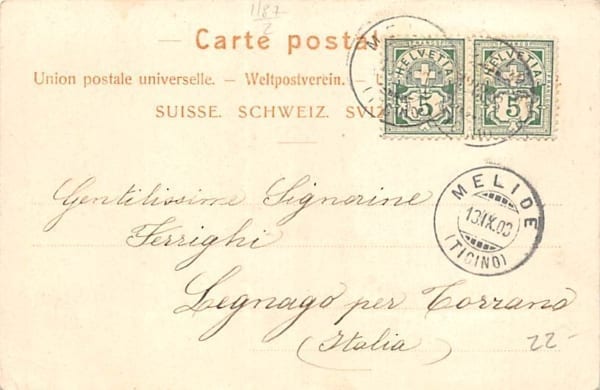 1187
2
Carte postal
Union postale universelle. — Weltpostverein. —
SUISSE. SCHWEIZ. SVIZ
HELVETIA HELVETIA
5 5
MELIDE
13.IX.03
(TICINO)
Gentilissime Signorine
Ferrighi
Legnago per Torrano
(Italia)
22-